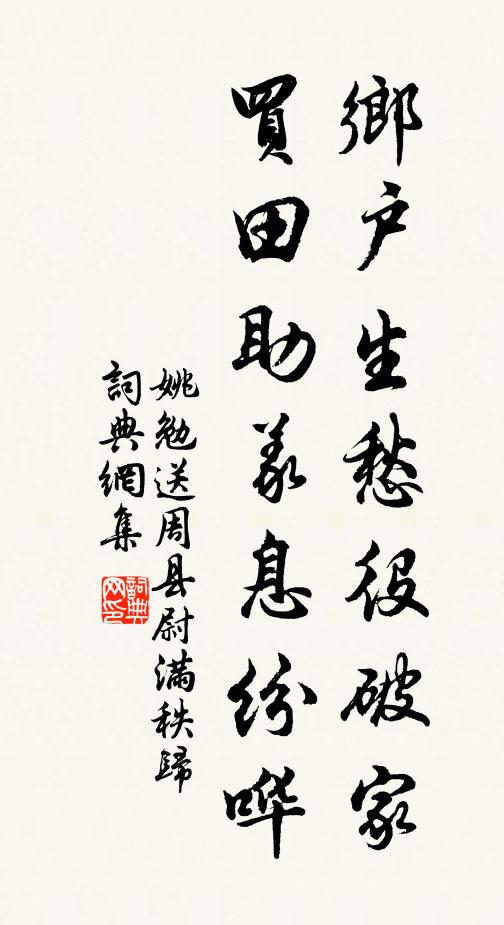 鄉户生愁役破家
買田助义息纷哗
姚勉送周县尉满秩歸
詞典網集
詞典网印